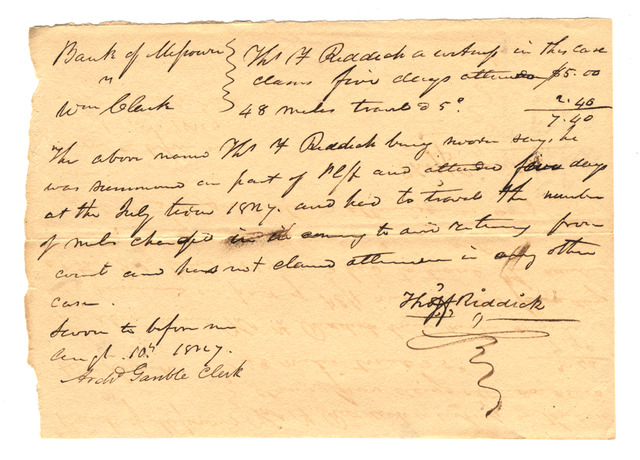 Bank of Missouri } Tho F Riddick a witness in this case
vs } claims five days attendce $5.00
Wm Clark } 48 miles travel @ 5c 2.40
7.40
The above name Tho F Riddick being sworn says he
was summond on part of Plff and attended five days
at the July term 1827. and had to travel the number
of miles charged in coming to and returng from
court and has not claimd attendance in any other
case.
Tho F Riddick
Sworn to before me
Augt. 10th 1827.
Archd Gamble Clerk